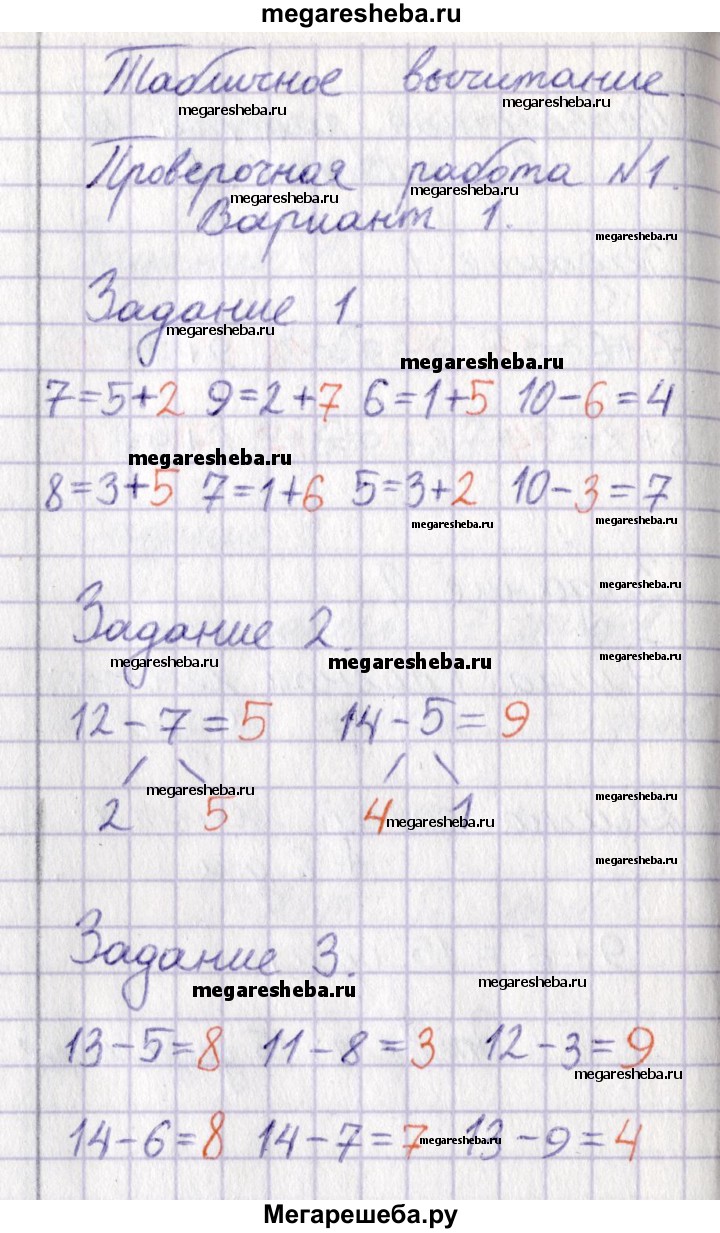 megaresheba.ru
Табличное вычитание.
megaresheba.ru megaresheba.ru
Проверочная работа №1.
megaresheba.ru megaresheba.ru
Вариант 1.
megaresheba.ru
Задание 1.
megaresheba.ru
megaresheba.ru
7=5+2 9=2+7 6=1+5 10-6=4
megaresheba.ru
8=3+5 7=1+6 5=3+2 10-3=7
megaresheba.ru megaresheba.ru
megaresheba.ru
Задание 2.
megaresheba.ru megaresheba.ru megaresheba.ru
12-7=5 14-5=9
megaresheba.ru megaresheba.ru
2 5 4 1
megaresheba.ru
megaresheba.ru
Задание 3.
megaresheba.ru megaresheba.ru
13-5=8 11-8=3 12-3=9
megaresheba.ru
14-6=8 14-7=7 13-9=4
megaresheba.ru
Мегарешеба.ру